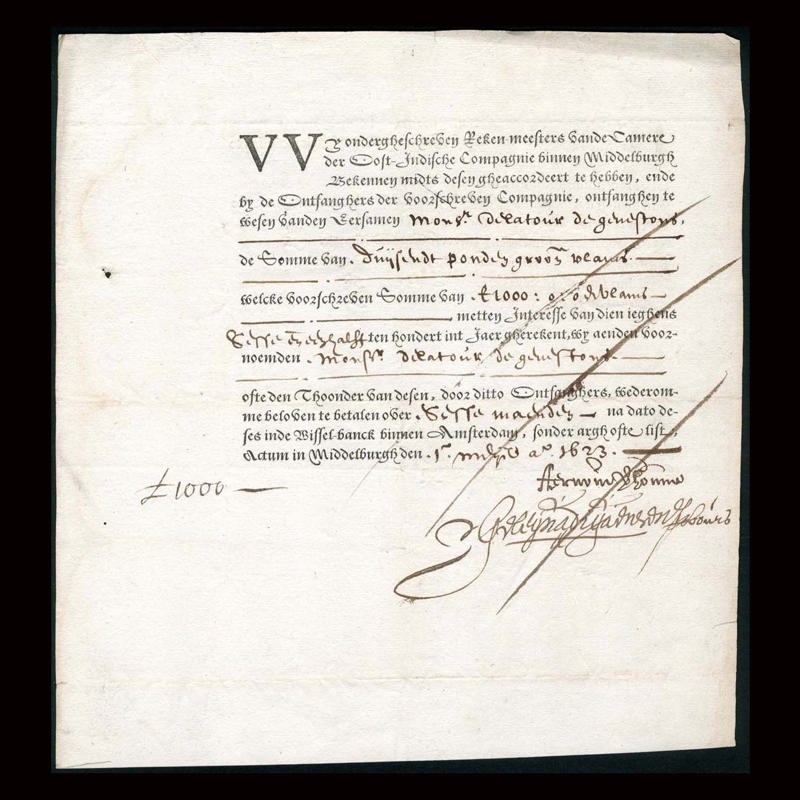 VVy ondergheschreven Reken-meesters vande Camere
der Oost-Indische Compagnie binnen Middelburgh
Bekennen midts desen gheaccordeert te hebben, ende
by de Ontfanghers der voorschreven Compagnie, ontfanghen te
wesen vanden Eersamen Monsr. Delatour de genestons,
de Somme van Duijsendt ponden grooten vlams.
welcke voorschreven Somme van £1000: 0: 0 vlams
metten Interesse van dien jeghens
Sesse een half ten hondert int Jaer gherekent, wy aenden voor-
noemden Monsr. Delatour de genestons.
ofte den Thoonder van desen, door ditto Ontfanghers, wederom-
me beloven te betalen over Sesse maenden na dato de-
ses inde Wissel-banck binnen Amsterdam, sonder argh ofte list,
Actum in Middelburgh den 1. ao. 1623.
£1000